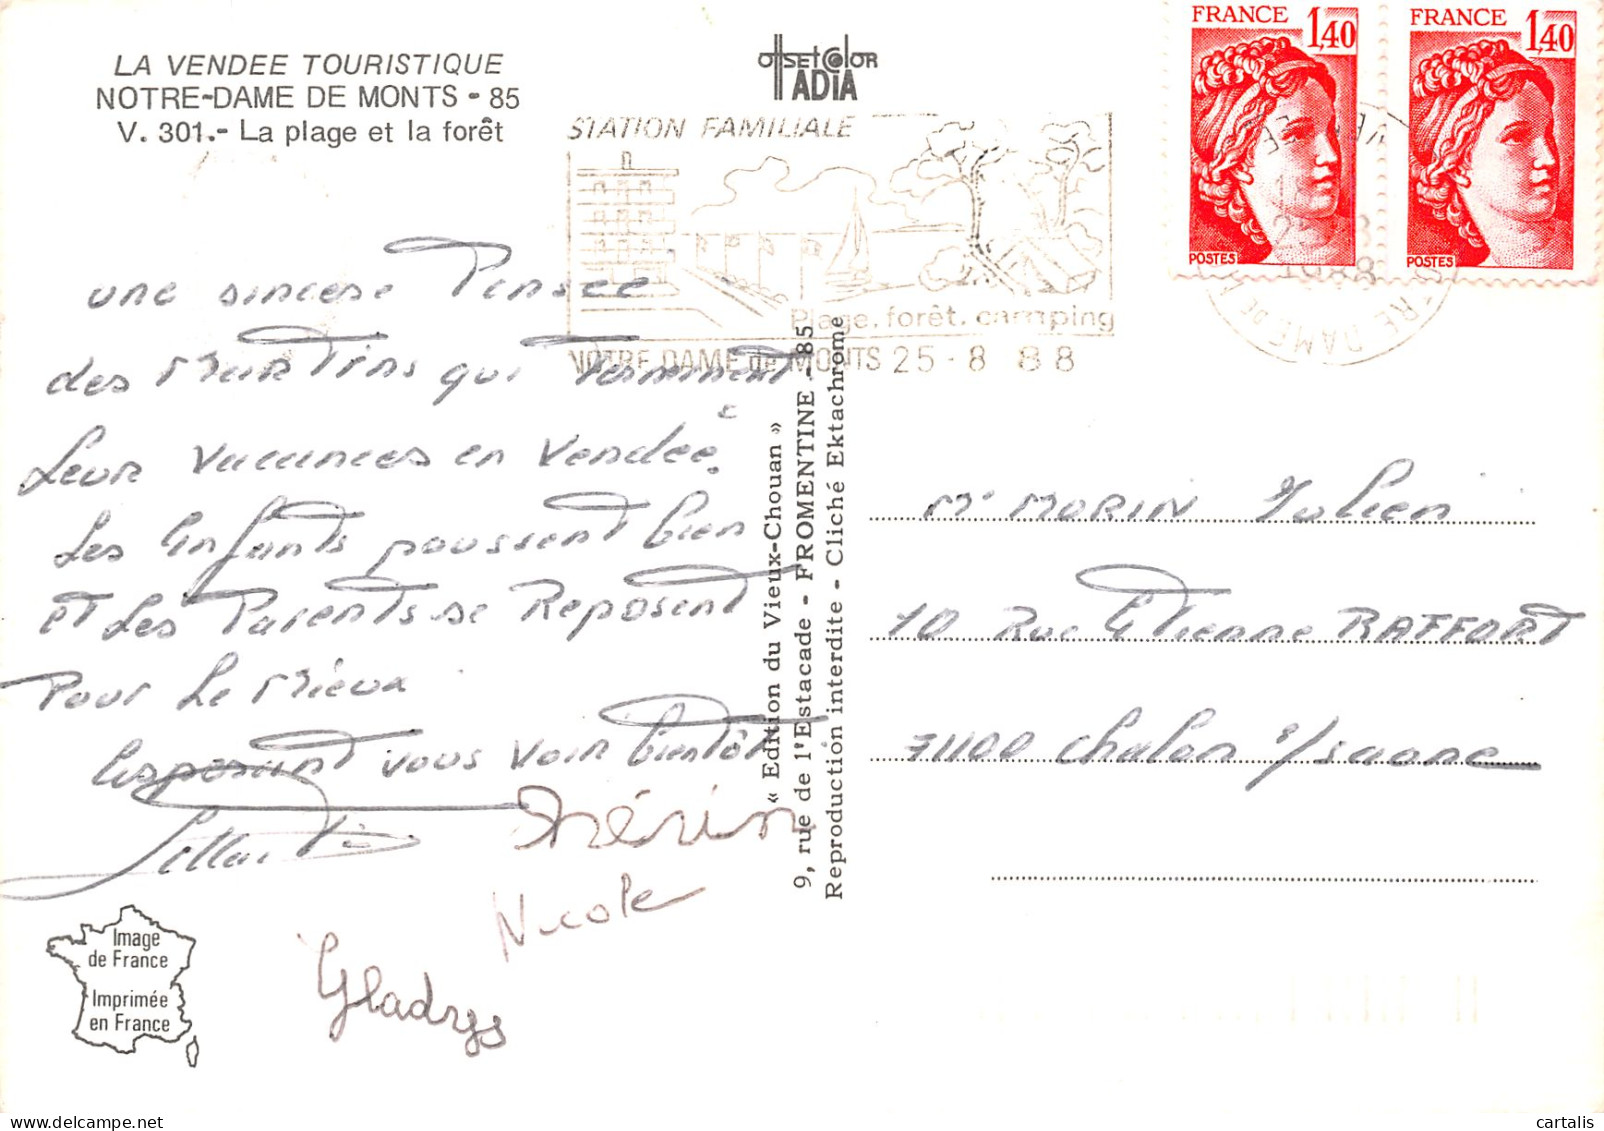 LA VENDEE TOURISTIQUE
NOTRE-DAME DE MONTS - 85
V. 301.- La plage et la forêt
offset color
ADIA
STATION FAMILIALE
Plage. forêt. camping
NOTRE DAME de MONTS 25-8 88
FRANCE 1,40
POSTES
FRANCE 1,40
POSTES
1988
une sincere Pensee
des Martins qui Terminent
Leur vacances en Vendée.
Les Enfants poussent bien
et Les Parents se Reposent
Pour Le Mieux
Esperant vous voir bientôt
Nicole
Gladys
« Edition du Vieux-Chouan »
9, rue de l'Estacade - FROMENTINE - 85
Reproduction interdite - Cliché Ektachrome
Mr MORIN Julien
10 Rue Etienne RAFFORT
71100 Chalon s/saone
Image
de France
Imprimée
en France
cartalis